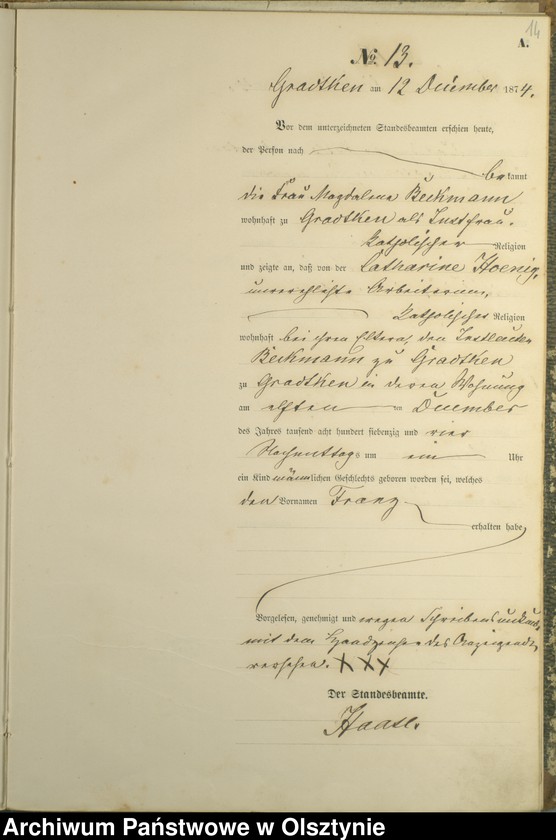 14
A.
No. 13.
Gradtken am 12 December 1874.
Vor dem unterzeichneten Standesbeamten erschien heute,
der Person nach
bekannt
die Frau Magdalena Beckmann
wohnhaft zu Gradtken als Instfrau,
katholischer Religion
und zeigte an, daß von der Catharine Hoenig,
unverehlichte Arbeiterin,
katholischer Religion
wohnhaft bei ihren Eltern, den Instleuten
Beckmann zu Gradtken
zu Gradtken in deren Wohnung
am elften December
des Jahres tausend acht hundert siebenzig und vier
Nachmittags um ein Uhr
ein Kind männlichen Geschlechts geboren worden sei, welches
den Vornamen Franz
erhalten habe
Vorgelesen, genehmigt und wegen Schreibensunkunde
mit dem Handzeichen des Anzeigenden
versehen. XXX
Der Standesbeamte.
Haase.
Archiwum Państwowe w Olsztynie